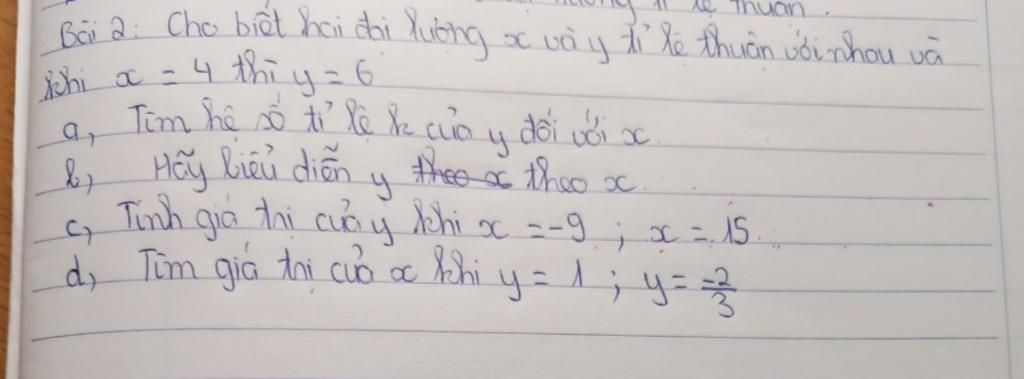 tỉ lệ thuận.
Bài 2: Cho biết hai đại lượng x và y tỉ lệ thuận với nhau và
khi x = 4 thì y = 6
a, Tìm hệ số tỉ lệ k của y đối với x.
b, Hãy biểu diễn y theo x theo x.
c, Tính giá trị của y khi x = -9 ; x = 15.
d, Tìm giá trị của x khi y = 1 ; y = -2/3